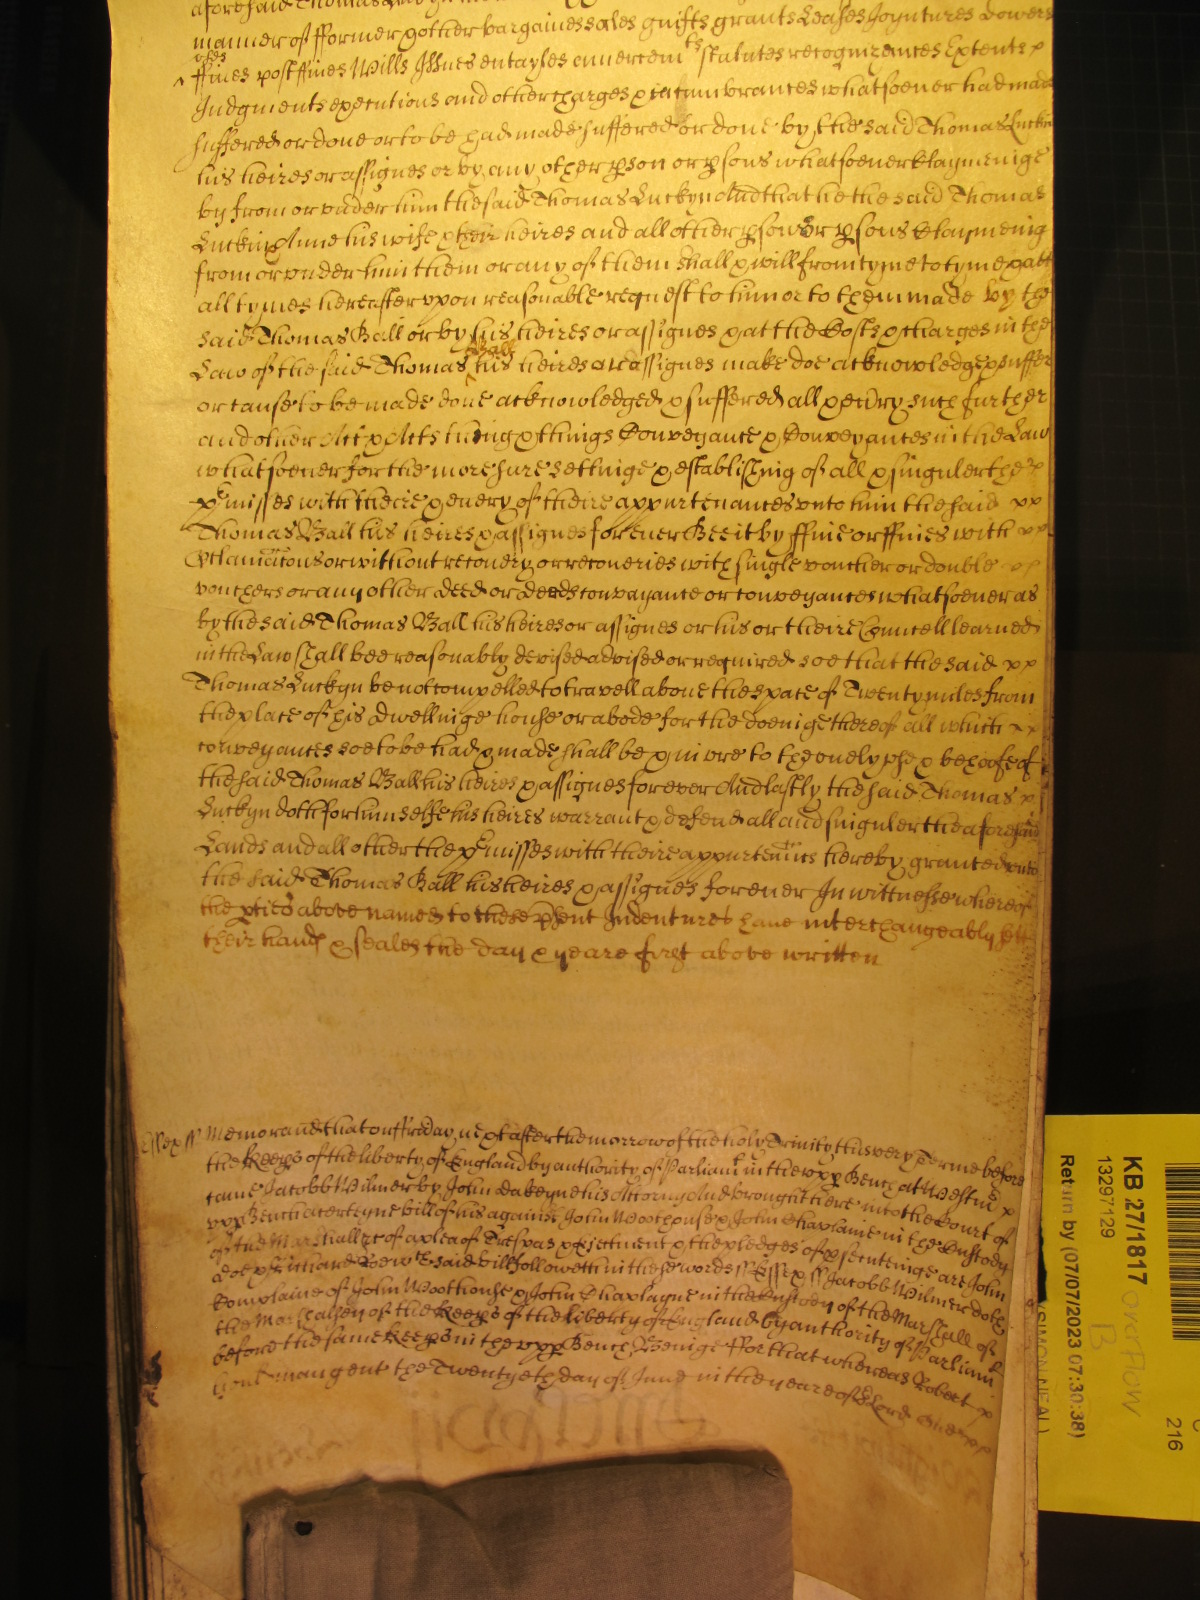 aforesaid Thomas
manner of fformer & other bargaines sales guifts grants Leases Joyntures Dowers
uses
ffines post ffines Wills Issues entayles amerciam^ts statutes recognizances Extents x
Judgments executions and other charges & incumbrances whatsoever had made
suffered or done or to be had made suffered or done by the said Thomas Luckyn
his heires or assignes or by any other pson or psons whatsoever Claymeinge
by from or under him the said Thomas Luckyn And that he the said Thomas
Luckin Anne his wife & their heires and all other pson or psons Claymeing
from or under him them or any of them shall & will from tyme to tyme & att
all tymes hereafter upon reasonable request to him or to them made by the
said Thomas Ball or by his heires or assignes & at the Costs & charges in the
Ball
Law of the said Thomas his heires or assignes make doe acknowledge & suffer
or cause to be made done acknowledged & suffered all & every such further
and other Act & Acts thing & things Conveyance & Conveyances in the Law
whatsoever for the more sure setlinge & establishing of all & singuler the x
pmisses with theire & every of theire appurtenances unto him the said xx
Thomas Ball his heires & assignes for ever Bee it by ffine or ffines with xx
pclamacons or without recovery or recoveries with single voucher or double xx
vouchers or any other deed or deeds conveyance or conveyances whatsoever as
by the said Thomas Ball his heires or assignes or his or theire Councell learned
in the Law shall bee reasonably devised advised or required soe that the said xx
Thomas Luckyn be not compelled to travell above the space of Twenty miles from
the place of his dwellinge house or abode for the doeinge thereof all which xx
conveyances soe to be had & made shall be & inure to the onely use & behoofe of
the said Thomas Ball his heires & assignes for ever And lastly the said Thomas x
Luckyn doth for himselfe his heires warrant & defend all and singuler the aforesaid
Lands and all other the pmisses with theire appurtenncs hereby granted unto
the said Thomas Ball his heires & assignes for ever In wittnesse whereof
the pties above named to these psent Indentures have interchangeably sett
their hands & seales the day & yeare first above written
Essex ss Memorand that on ffriday next after the morrow of the holy Trinity this very Terme before
the Keeps of the liberty of England by authority of Parliamt in the upp Bench at Westm x
came Jacobb Wilmer by John Dakeyne his Attorny And brought here into the Court of
upp Bench a certeyne bill of his against John Woothouse & John Chaplaine in the Custody
of the Marshall &c of a plea of Trespas & ejectment & the pledges of psecuteinge are John
doe & Richard Roe wch said bill followeth in these words ss Essex ss Jacobb Wilmer doth
Complaine of John Woothouse & John Chaplayne in the Custody of the Marshall of
the Marshalsey of the Keeps of the liberty of England by authority of Parliamt
before the same Keeps in the upp Bench Beinge For that whereas Robert x
gent the Twentyeth day of June in the yeare of or Lord One xx
KB 27/1817 overflow
13297129
B
Return by (07/07/2023 07:30:38)
(SIMON NEAL)
216